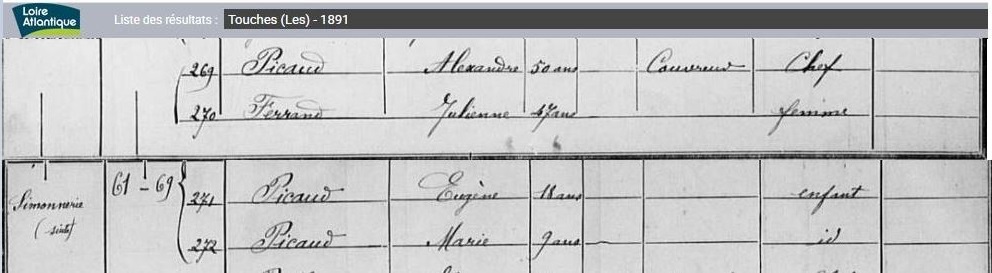 Loire Atlantique
Liste des résultats : Touches (Les) - 1891
269 Picaud Alexandre 50 ans Couvreur Chef
270 Ferrand Julienne 47 ans femme
61 - 69 271 Picaud Eugène 18 ans enfant
Simonnerie
(suite) 272 Picaud Marie 9 ans id